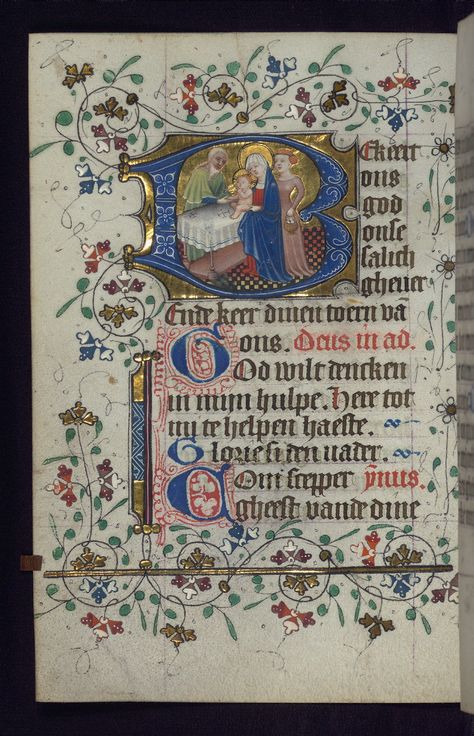 Bekeert
ons
god
onse
salich
gheuer
Ende keer dinen toern vā
ons. Deus in ad.
God wilt dencken
in mijn hulpe. Here tot
mi te helpen haeste.
Glorie si den uader.
Com scepper ymus.
gheest vande dine